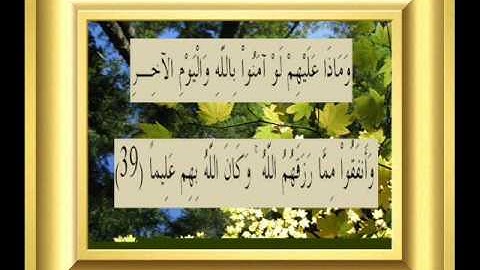 وَمَاذَا عَلَيْهِمْ لَوْ آمَنُواْ بِاللَّهِ وَالْيَوْمِ الآخِـرِ
وَأَنفَقُواْ مِمَّا رَزَقَهُمُ اللَّهُ ۚ وَكَانَ اللَّهُ بِهِم عَلِيماً (39)